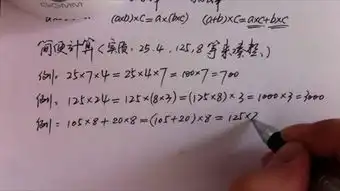 (a×b)×c=a×(b×c) (a+b)×c=a×c+b×c
简便计算(实质,25.4,125,8等来凑整.)
例: 25×7×4=25×4×7=100×7=700
例: 125×24=125×(8×3)=(125×8)×3=1000×3=3000
例: 105×8+20×8=(105+20)×8=125×